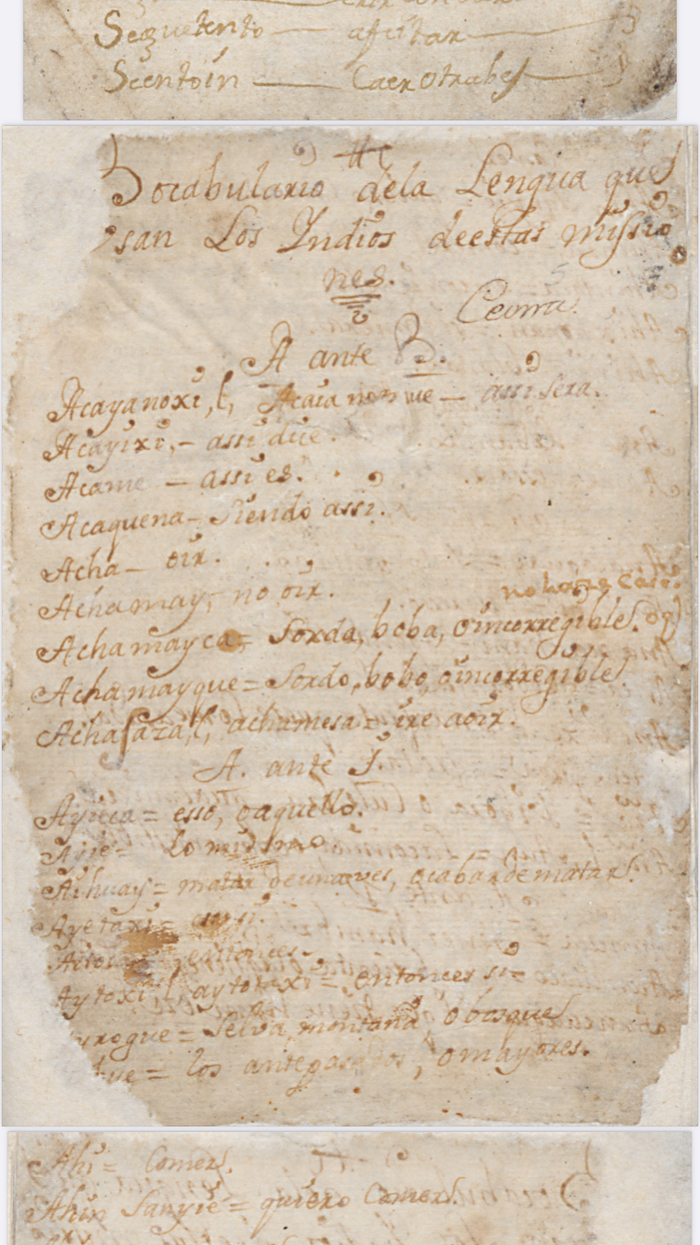 Sezquetento — afeitar
Scentoin — Caer otrabes
Vocabulario dela Lengua que
usan Los Yndios deestas missio
nes.
Ceona.
A ante B.
Acayanoxi, l, Acaia — assi sera.
Acayixi, – assi dice.
Acame — assi es.
Acaquena – siendo assi.
Acha – oir.
Achamay, no oir.
no haze caso.
Achamayca = Sorda, boba, oincorregible.
Achamayque = Sordo, bobo, oincorregible
Achasaza, l, achamesa = ire aoir.
A. ante J.
Ayicca = esso, oaquello.
Ayie = Lo mismo
Aihuay = matar deunaves, ocabardematar.
Ayetaxi =
entonces.
Aytoxi, l, aytotaxi = entonces si =
rogue = selva, montaña, obosque
= los antepasados, omayores.
Ahi = Comer.
Ahin Sanyie = quiero Comer.